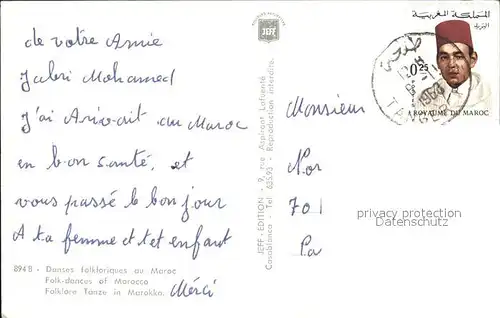 de votre Amie
Jabri Mohamed
J'ai Arivait au Maroc
en bon santé, et
vous passé le bon jour
A ta femme et tet enfant
Mérci
894 B - Danses folkloriques au Maroc
Folk-dances of Marocco
Folklore Tänze in Marokko.
JEFF
JEFF - EDITION - 9, rue Aspirant Lafuente
Casablanca - Tel 625.93 - Reproduction interdite.
المملكة المغربية
البريد
0,25
ROYAUME DU MAROC
1968
TAN
Monsieur
Nor
701
Pa
privacy protection
watermark